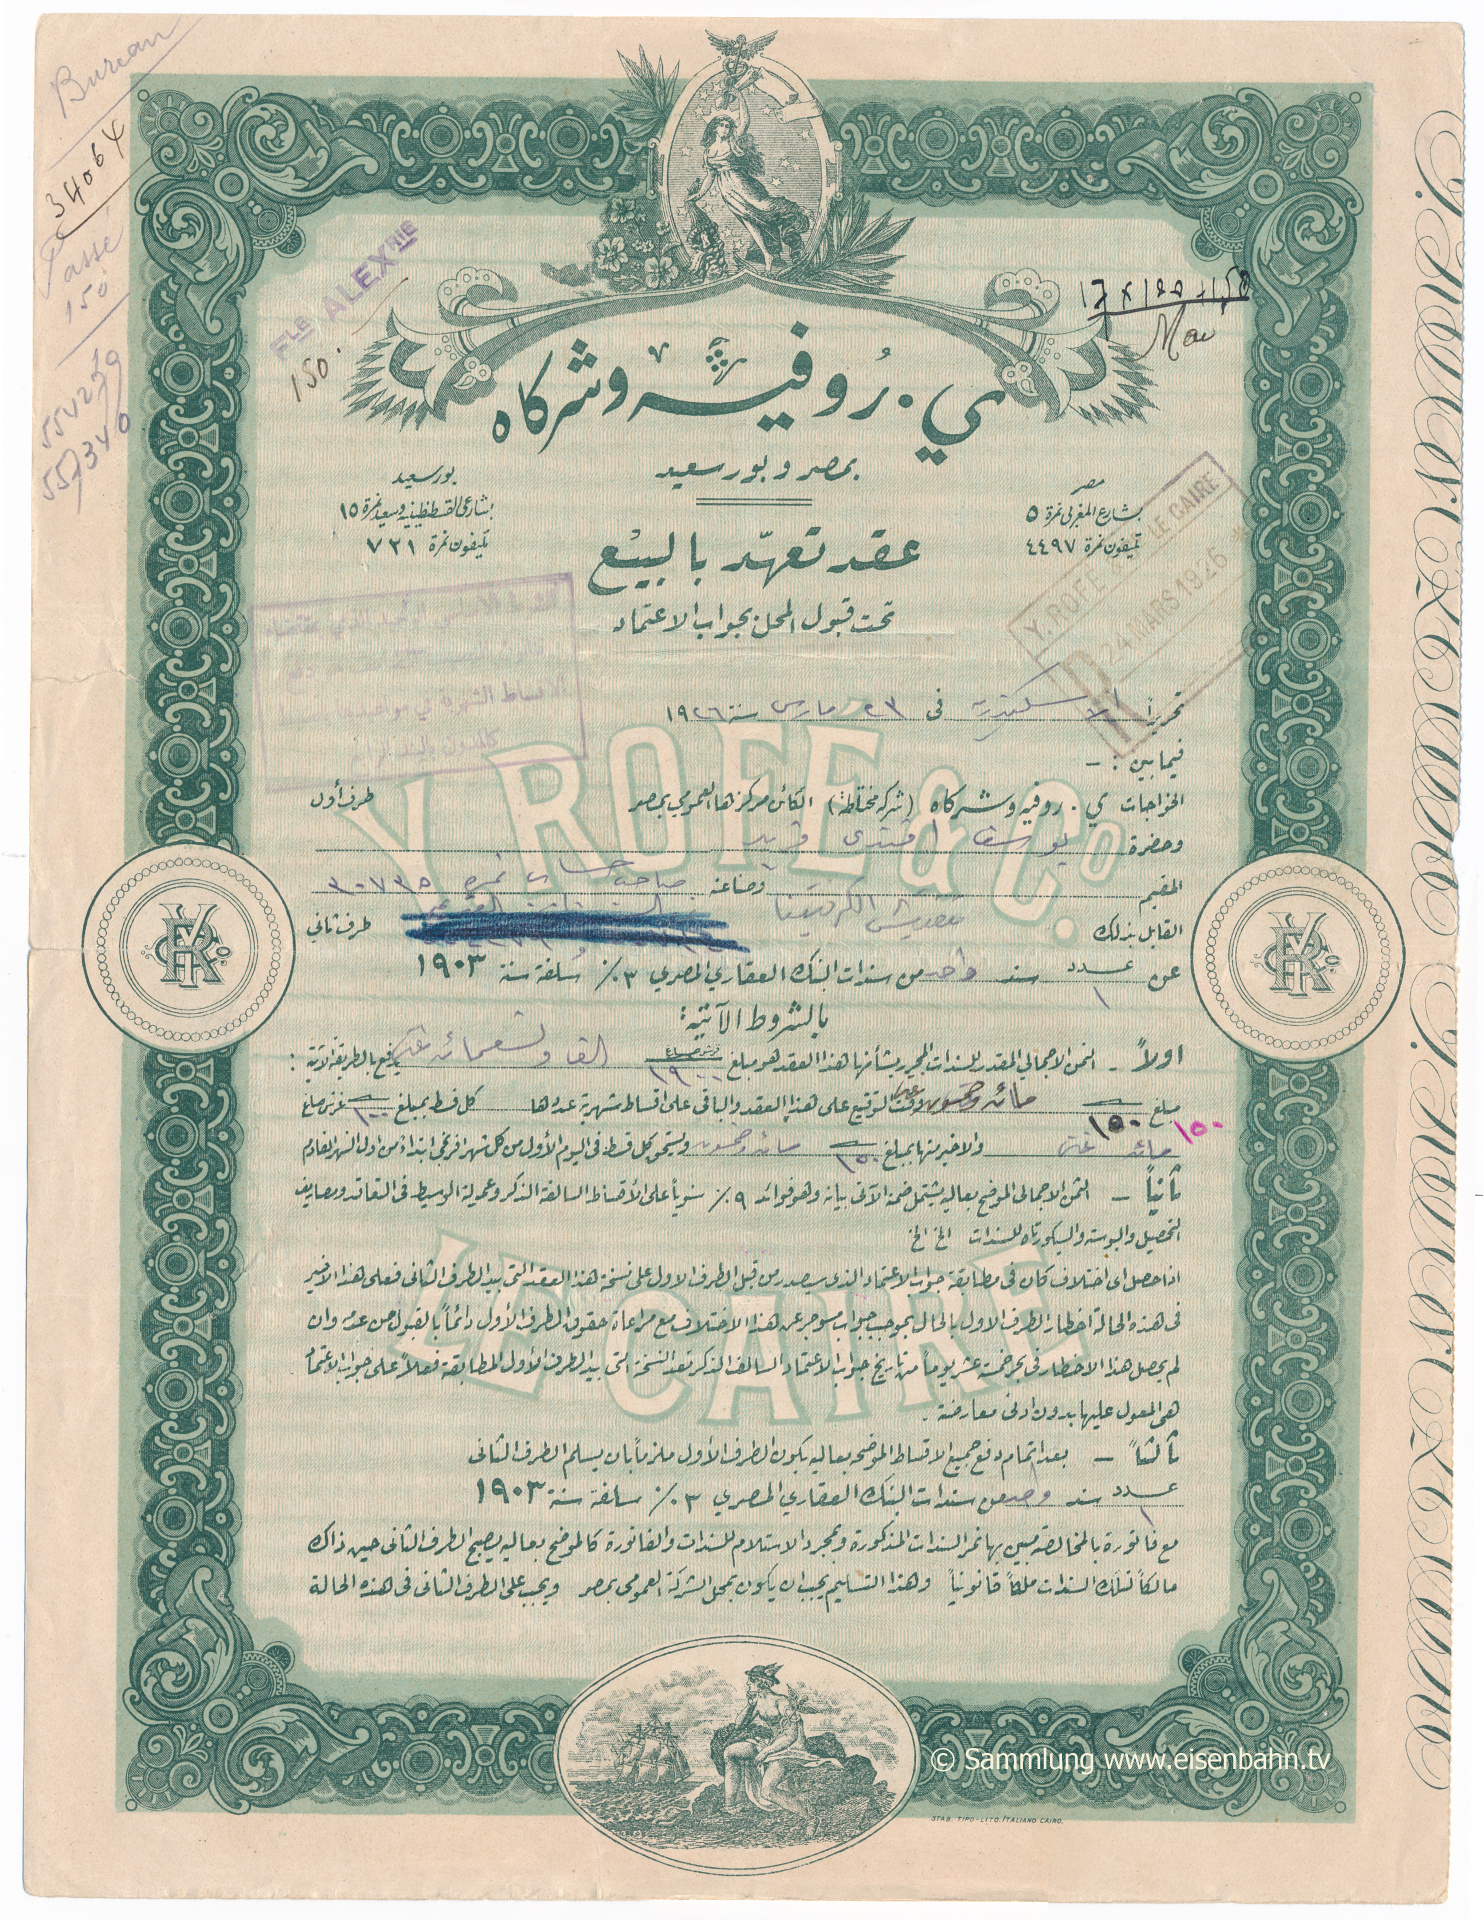 Bureau
34064
Passé
150
554279
557340
Fle ALEXRIE
150.
ي. روفيه وشركاه
بمصر وبور سعيد
مصر
بشارع المغربى نمرة ٥
تليفون نمرة ٤٤٩٧
بور سعيد
بشارعى القسطنطينيه وسعيد نمرة ١٥
تليفون نمرة ٧٢١
عقد تعهّد بالبيع
تحت قبول المحل بجواب الاعتماد
Y. ROFÉ & LE CAIRE
24 MARS 1926
R
تحريراً اسكندرية فى ٢٣ مارس سنة ١٩٢٦
فيما بين : -
الخواجات ي. روفيه وشركاه (شركة مختلطة) الكائن مركزها العمومي بمصر طرف أول
وحضرة يوسف افندى فريد
المقيم وصناعته
القابل بذلك طرف ثاني
عن عدد ١ سند واحد من سندات البنك العقاري المصري ٣٪ سُلفة سنة ١٩٠٣
بالشروط الآتية:
اولاً - الثمن الاجمالي المقدر للسندات المحرر بشأنها هذا العقد هو مبلغ قرش صاغ ١٩٠٠ الف وتسعمائة غرش يدفع بالطريقة الآتية :
مبلغ ١٥٠ مائة وخمسون وقت التوقيع على هذا العقد والباقى على اقساط شهرية عددها كل قسط بمبلغ ١٠٠ غرش صاغ
١٥٠ مائة غرش والاخير منها بمبلغ ١٥٠ مائة وخمسون ويستحق كل قسط فى اليوم الأول من كل شهر افرنجى ابتداءً من اول الشهر القادم
ثانياً - الثمن الاجمالى الموضح بعاليه يشتمل ضمن الآتى بيانه وهو فوائد ٩٪ سنوياً على الأقساط السالفة الذكر وعمولة الوسيط فى التعاقد ومصاريف
التحصيل والبوسته والسيكورتاه للسندات الخ الخ
اذا حصل اى اختلاف كان فى مطابقة جواب الاعتماد الذى سيصدر من قبل الطرف الاول على نسخة هذا العقد التى بيد الطرف الثانى فعلى هذا الاخير
فى هذه الحالة اخطار الطرف الاول بالحال بموجب جواب مسوجر عن هذا الاختلاف مع مراعاة حقوق الطرف الأول دائماً بالقبول من عدمه وان
لم يحصل هذا الاخطار فى بحر خمسة عشر يوماً من تاريخ جواب الاعتماد السالف الذكر تعد النسخة التى بيد الطرف الأول المطابقة فعلاً على جواب الاعتماد
هى المعول عليها بدون ادنى معارضة .
ثالثاً - بعد اتمام دفع جميع الاقساط الموضحه بعاليه يكون الطرف الأول ملزماً بان يسلم الطرف الثانى
عدد ١ سند واحد من سندات البنك العقاري المصري ٣٪ سلفة سنة ١٩٠٣
مع فاتورة بالمخالصة مبين بها نمر السندات المذكورة وبمجرد الاستلام للسندات والفاتورة كالموضح بعاليه يصبح الطرف الثانى حين ذاك
مالكاً لتلك السندات ملكاً قانونياً وهذا التسليم يجب ان يكون بمحل الشركة العمومى بمصر ويجب على الطرف الثانى فى هذه الحالة
Y. ROFÉ & Co.
LE CAIRE
© Sammlung www.eisenbahn.tv
STAB. TIPO-LITO. ITALIANO CAIRO.